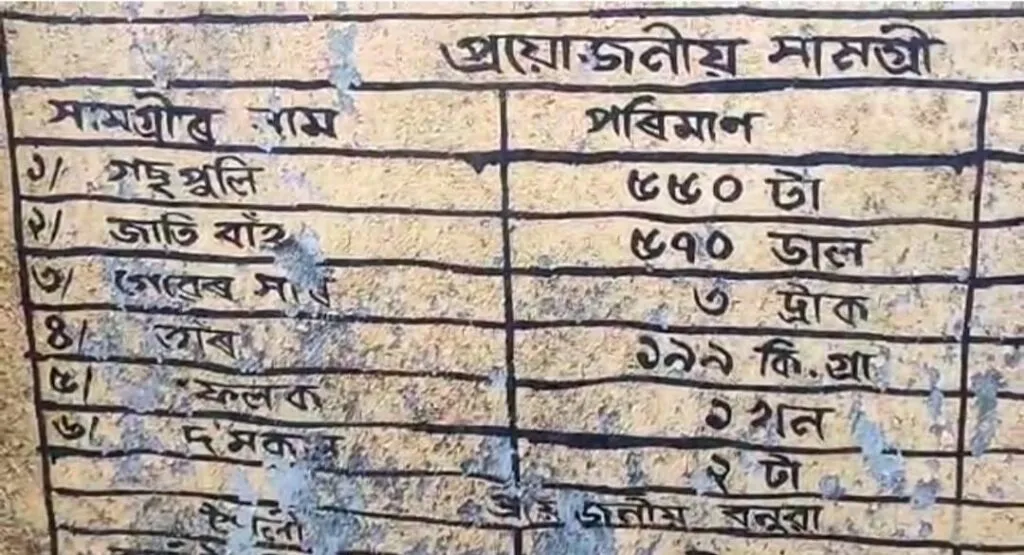 প্ৰয়োজনীয় সামগ্ৰী
সামগ্ৰীৰ নাম পৰিমাণ
১/ গছ পুলি ৫৫০ টা
২/ জাতি বাঁহ ৫৭০ ডাল
৩/ গোবৰ সাৰ ৩ ট্ৰাক
৪/ তাঁৰ ১৯৯ কি.গ্ৰা
৫/ ফলক ১ খন
৬/ ২ টা
প্ৰয়োজনীয় বনুৱা